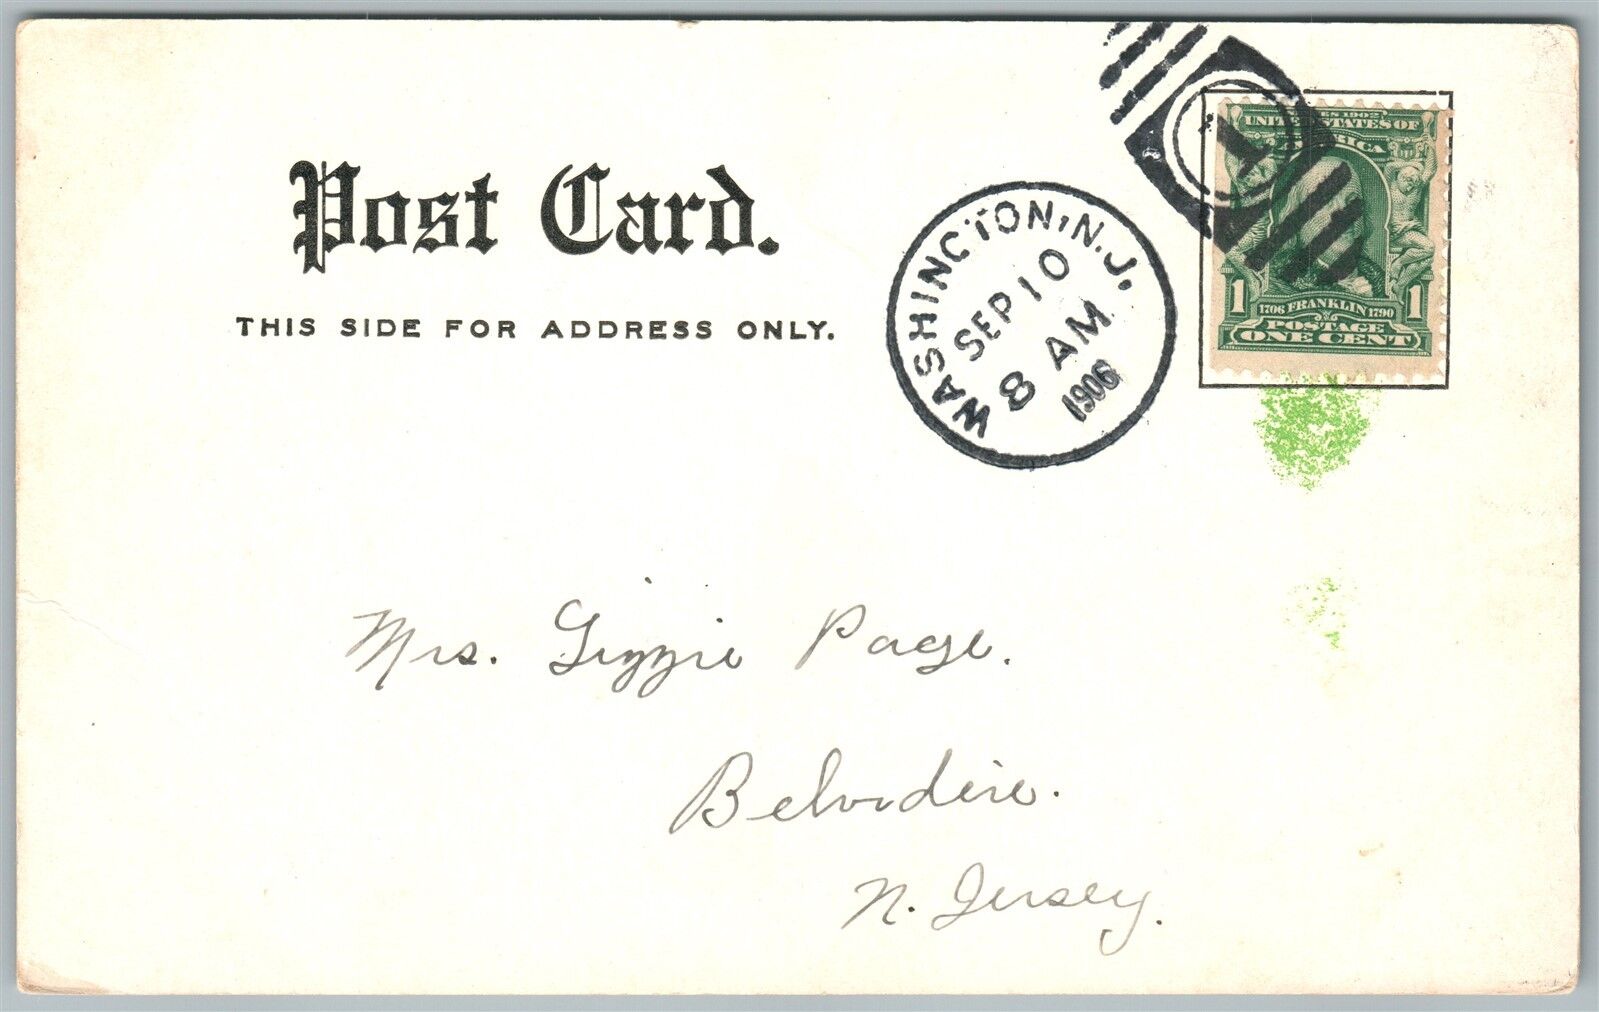 Post Card.
THIS SIDE FOR ADDRESS ONLY.
WASHINGTON, N.J.
SEP 10
8 AM
1906
1
SERIES 1902
UNITED STATES OF
AMERICA
1 1
1706 FRANKLIN 1790
POSTAGE
ONE CENT
Mrs. Lizzie Page.
Belvidere.
N. Jersey.